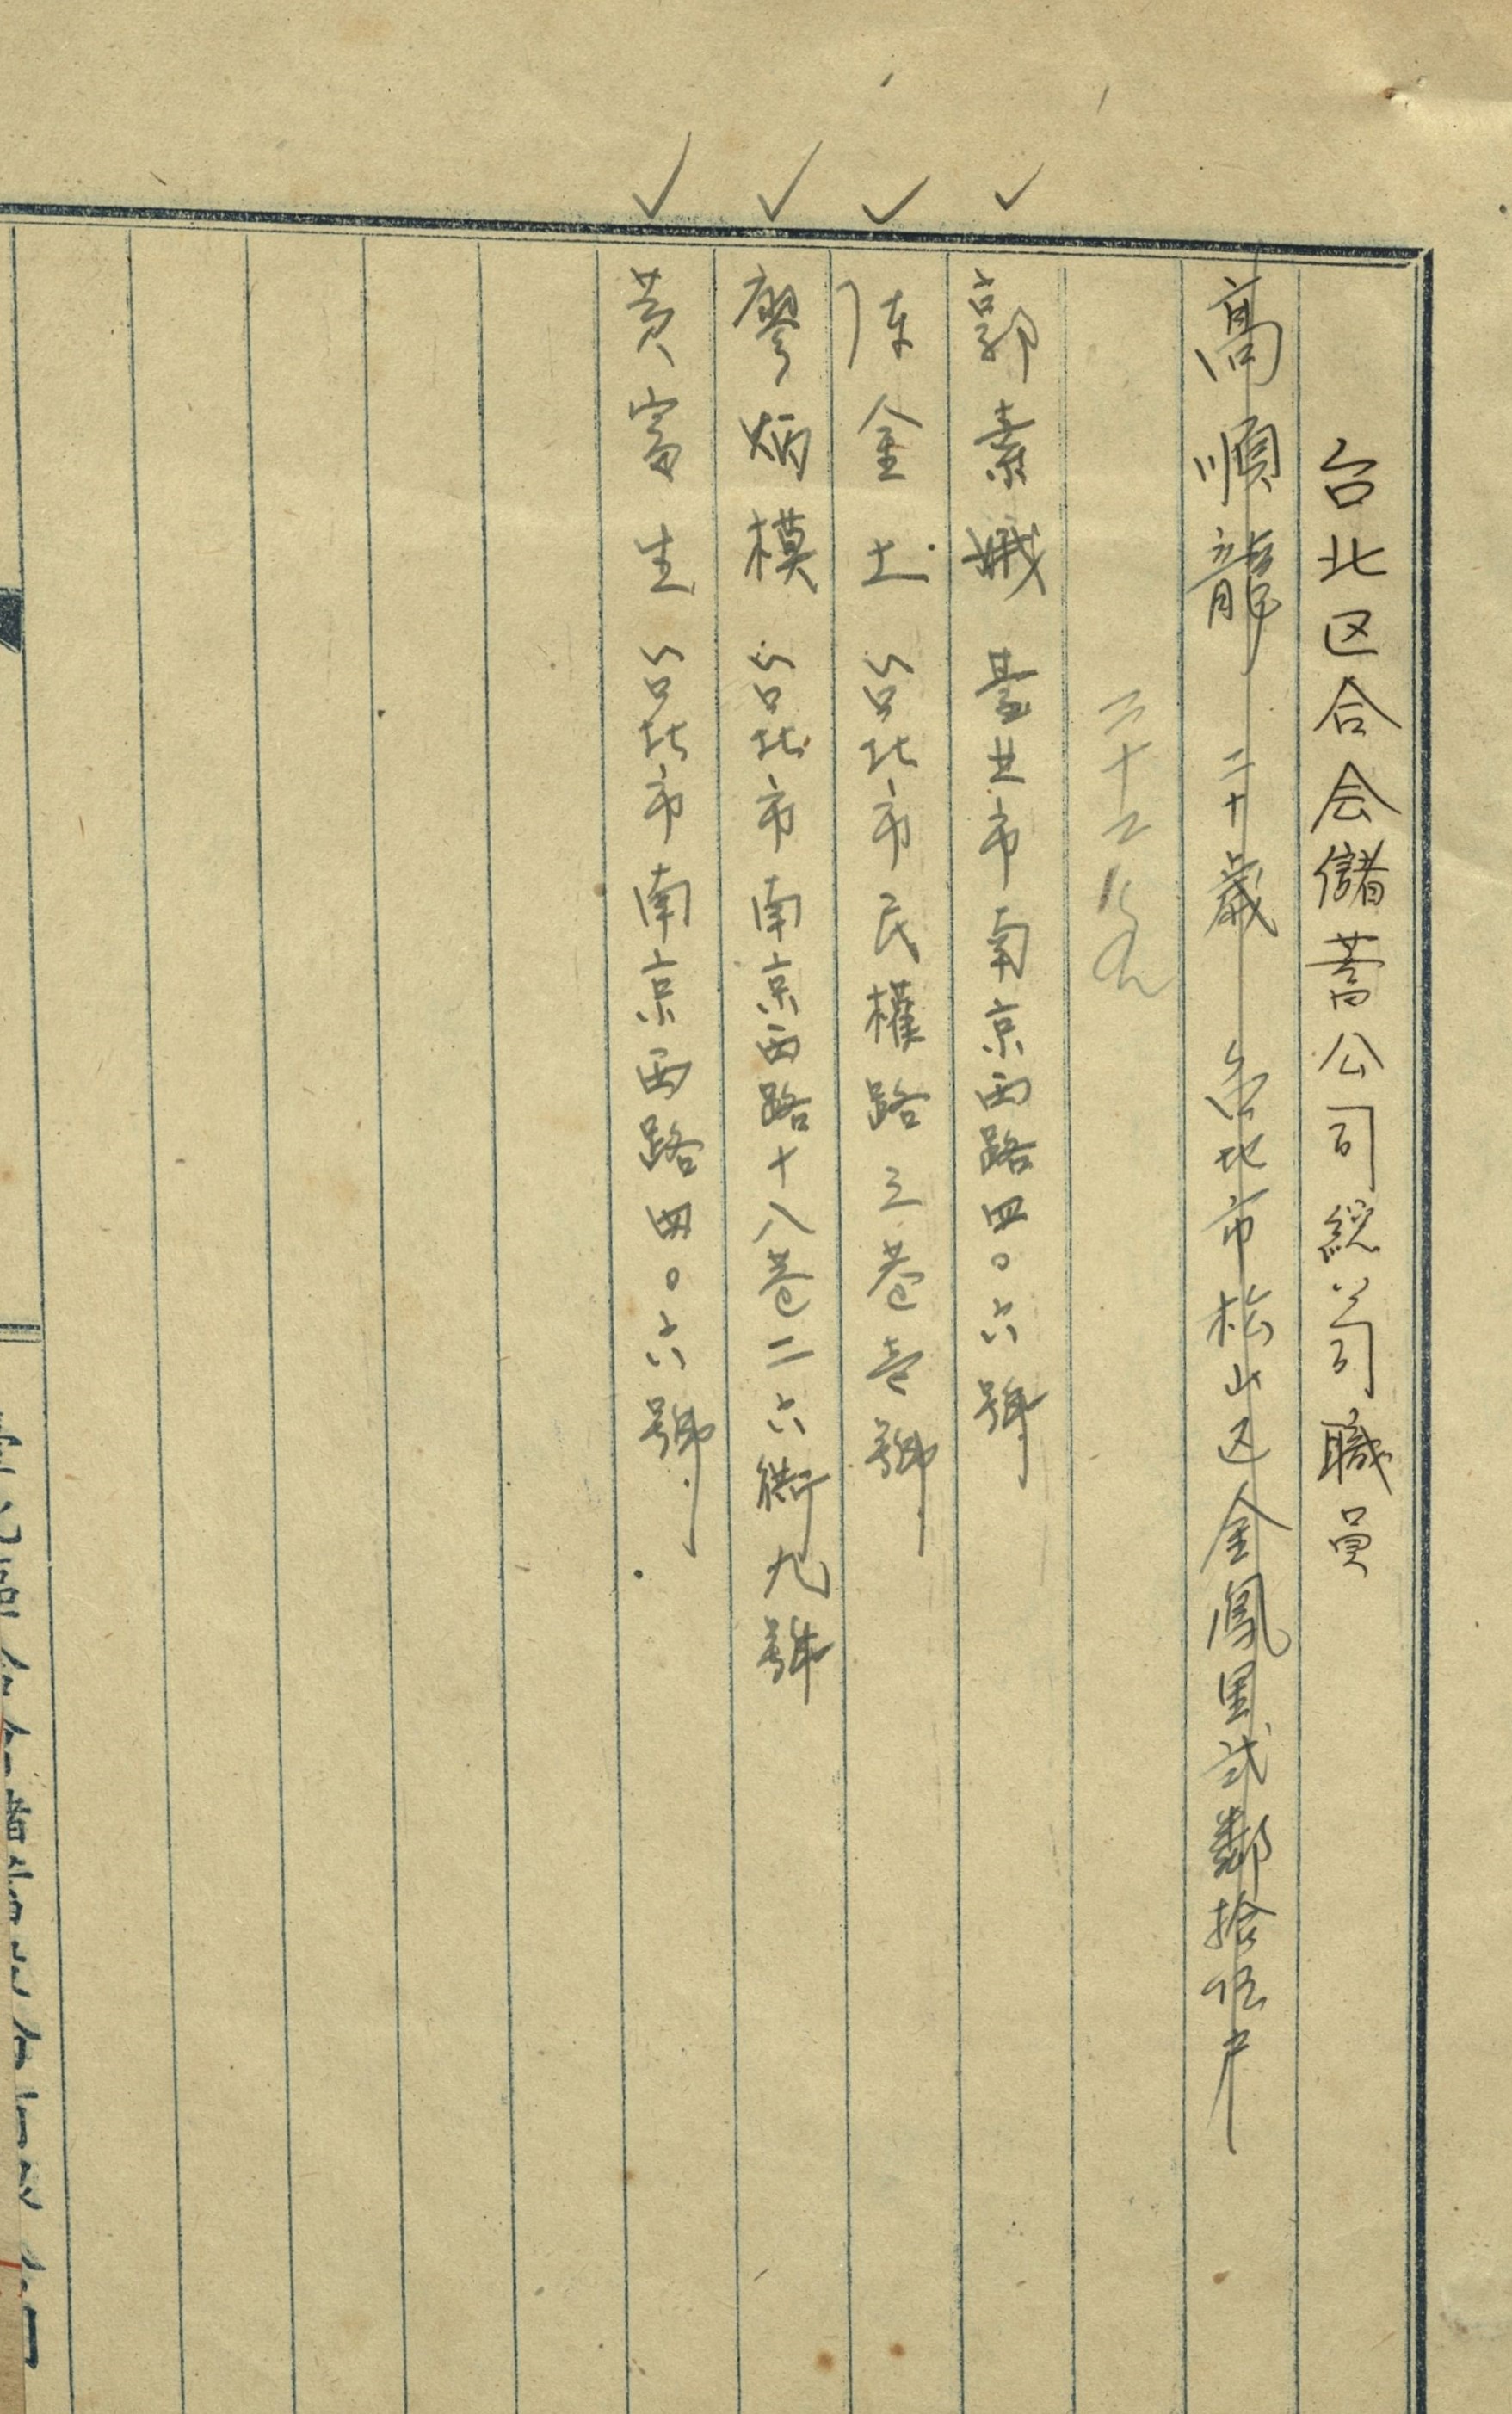 台北区合会儲蓄公司総公司職員
高順龍 二十歳 台北市松山区金鳳里弍鄰拾伍户
二十二
郭素娥 臺北市南京西路四〇六號
陳金土 台北市民權路三巷壱號
廖炳模 台北市南京西路十八巷二六衖九號
黄富生 台北市南京西路四〇六號